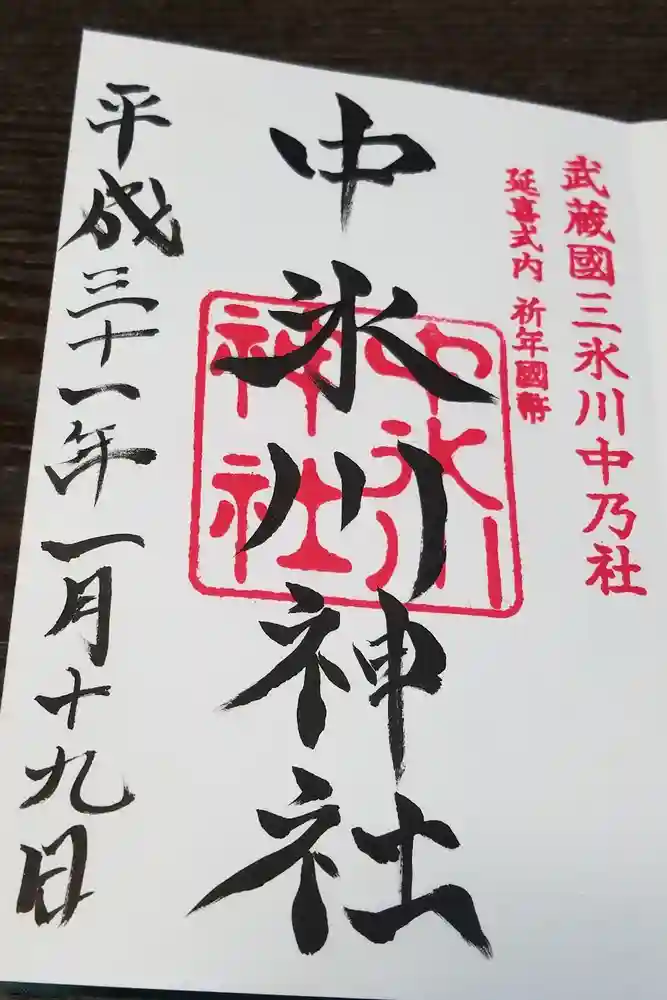 武蔵國三氷川中乃社
延喜式内 祈年國幣
中氷川神社
中氷川
神社
平成三十一年一月十九日